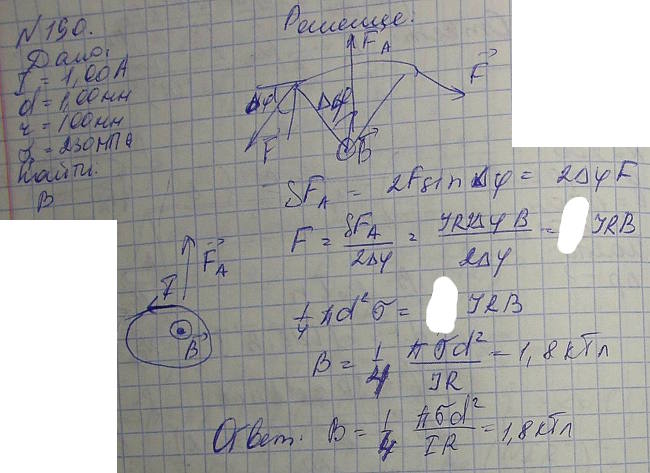 N 190.
Дано:
I = 1,00 А
d = 1,00 мм
r = 100 мм
σ = 230 МПа
Найти:
B
Решение:
F_A
F
Δφ Δφ
F B
δF_A = 2F sin Δφ = 2Δφ F
F = δF_A / 2Δφ = IR2Δφ B / 2Δφ = IRB
1/4 πd²σ = IRB
B = 1/4 πσd² / IR = 1,8 кТл
Ответ. B = 1/4 πσd² / IR = 1,8 кТл
F_A
I
B